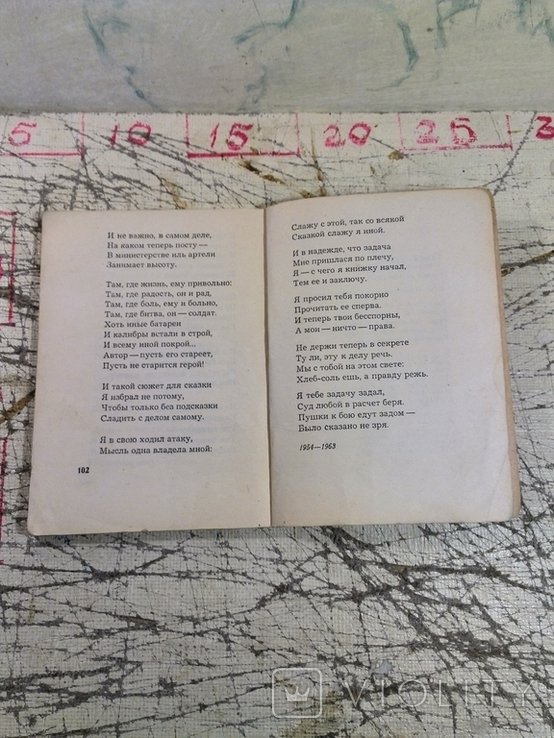 5 10 15 20 25 3
И не важно, в самом деле,
На каком теперь посту —
В министерстве иль артели
Занимает высоту.
Там, где жизнь, ему привольно:
Там, где радость, он и рад,
Там, где боль, ему и больно,
Там, где битва, он — солдат.
Хоть иные батареи
И калибры встали в строй,
И всему иной покрой...
Автор — пусть его стареет,
Пусть не старится герой!
И такой сюжет для сказки
Я избрал не потому,
Чтобы только без подсказки
Сладить с делом самому.
Я в свою ходил атаку,
Мысль одна владела мной:
102
Слажу с этой, так со всякой
Сказкой слажу я иной.
И в надежде, что задача
Мне пришлася по плечу,
Я — с чего я книжку начал,
Тем ее и заключу.
Я просил тебя покорно
Прочитать ее сперва.
И теперь твои бесспорны,
А мои — ничто — права.
Не держи теперь в секрете
Ту ли, эту к делу речь.
Мы с тобой на этом свете:
Хлеб-соль ешь, а правду режь.
Я тебе задачу задал,
Суд любой в расчет беря.
Пушки к бою едут задом —
Было сказано не зря.
1954—1963
VIOLITY